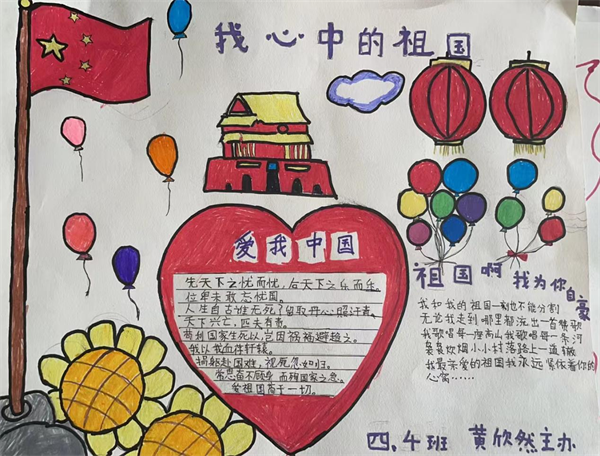 我心中的祖国
爱我中国
先天下之忧而忧,后天下之乐而乐。
位卑未敢忘忧国。
人生自古谁无死?留取丹心照汗青。
天下兴亡,匹夫有责。
苟利国家生死以,岂因祸福避趋之。
我以我血荐轩辕。
捐躯赴国难,视死忽如归。
常思奋不顾身,而殉国家之急。
爱祖国高于一切。
祖国啊 我为你自豪
我和我的祖国一刻也不能分割
无论我走到哪里都流出一首赞歌
我歌唱每一座高山我歌唱每一条河
袅袅炊烟小小村落路上一道辙
我最亲爱的祖国我永远紧依着你的
心窝……
四.4班 黄欣然主办